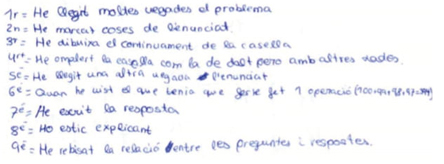 1r = He llegit moldes vegades el problema
2n = He marcat coses de l'enunciat.
3r = He dibuixa el continuament de la casella
4rt = He omplert la casella com la de dalt pero amb altres
5è = He llegit una altra vegada l'enunciat
6è = Quan he vist el que tenia que fer he fet 1 operació
7è = He escrit la resposta
8è = Ho estic explicant
9è = He rebisat la relació entre les preguntes i respostes.